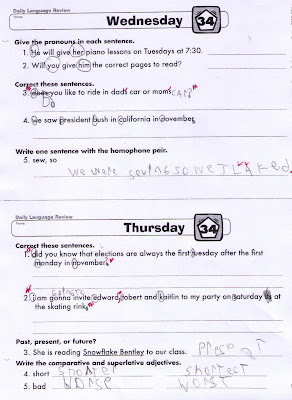 Daily Language Review
Name:
Wednesday 34
Give the pronouns in each sentence.
1. He will give her piano lessons on Tuesdays at 7:30.
2. Will you give him the correct pages to read?
Correct these sentences.
3. does you like to ride in dads car or moms car?
Do
4. we saw president bush in california in november
Write one sentence with the homophone pair.
5. sew, so
we were sewing so we
Daily Language Review
Name:
Thursday 34
Correct these sentences.
1. did you know that elections are always the first tuesday after the first
monday in november
going to
2. i am gonna invite edward robert and kaitlin to my party on saturday at
the skating rink
Past, present, or future?
3. She is reading Snowflake Bentley to our class. Present
Write the comparative and superlative adjectives.
4. short shorter shortest
5. bad worse worst